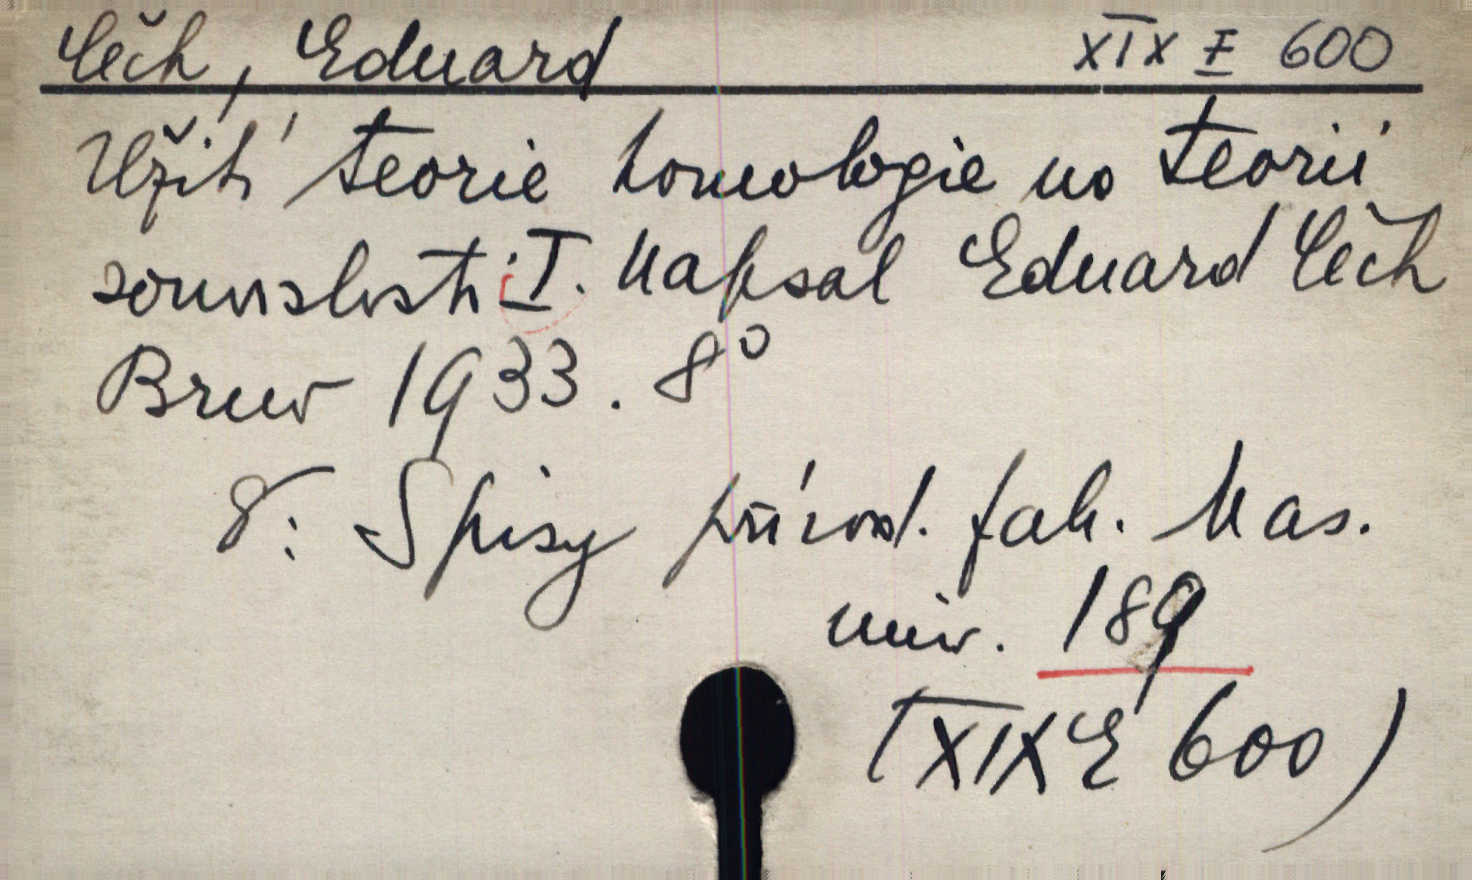 Čech, Eduard XIX E 600
Užití teorie homologie na teorii
souvislosti I. Napsal Eduard Čech
Brno 1933. 8°
8: Spisy přírod. fak. Mas.
univ. 189
(XIX E 600)